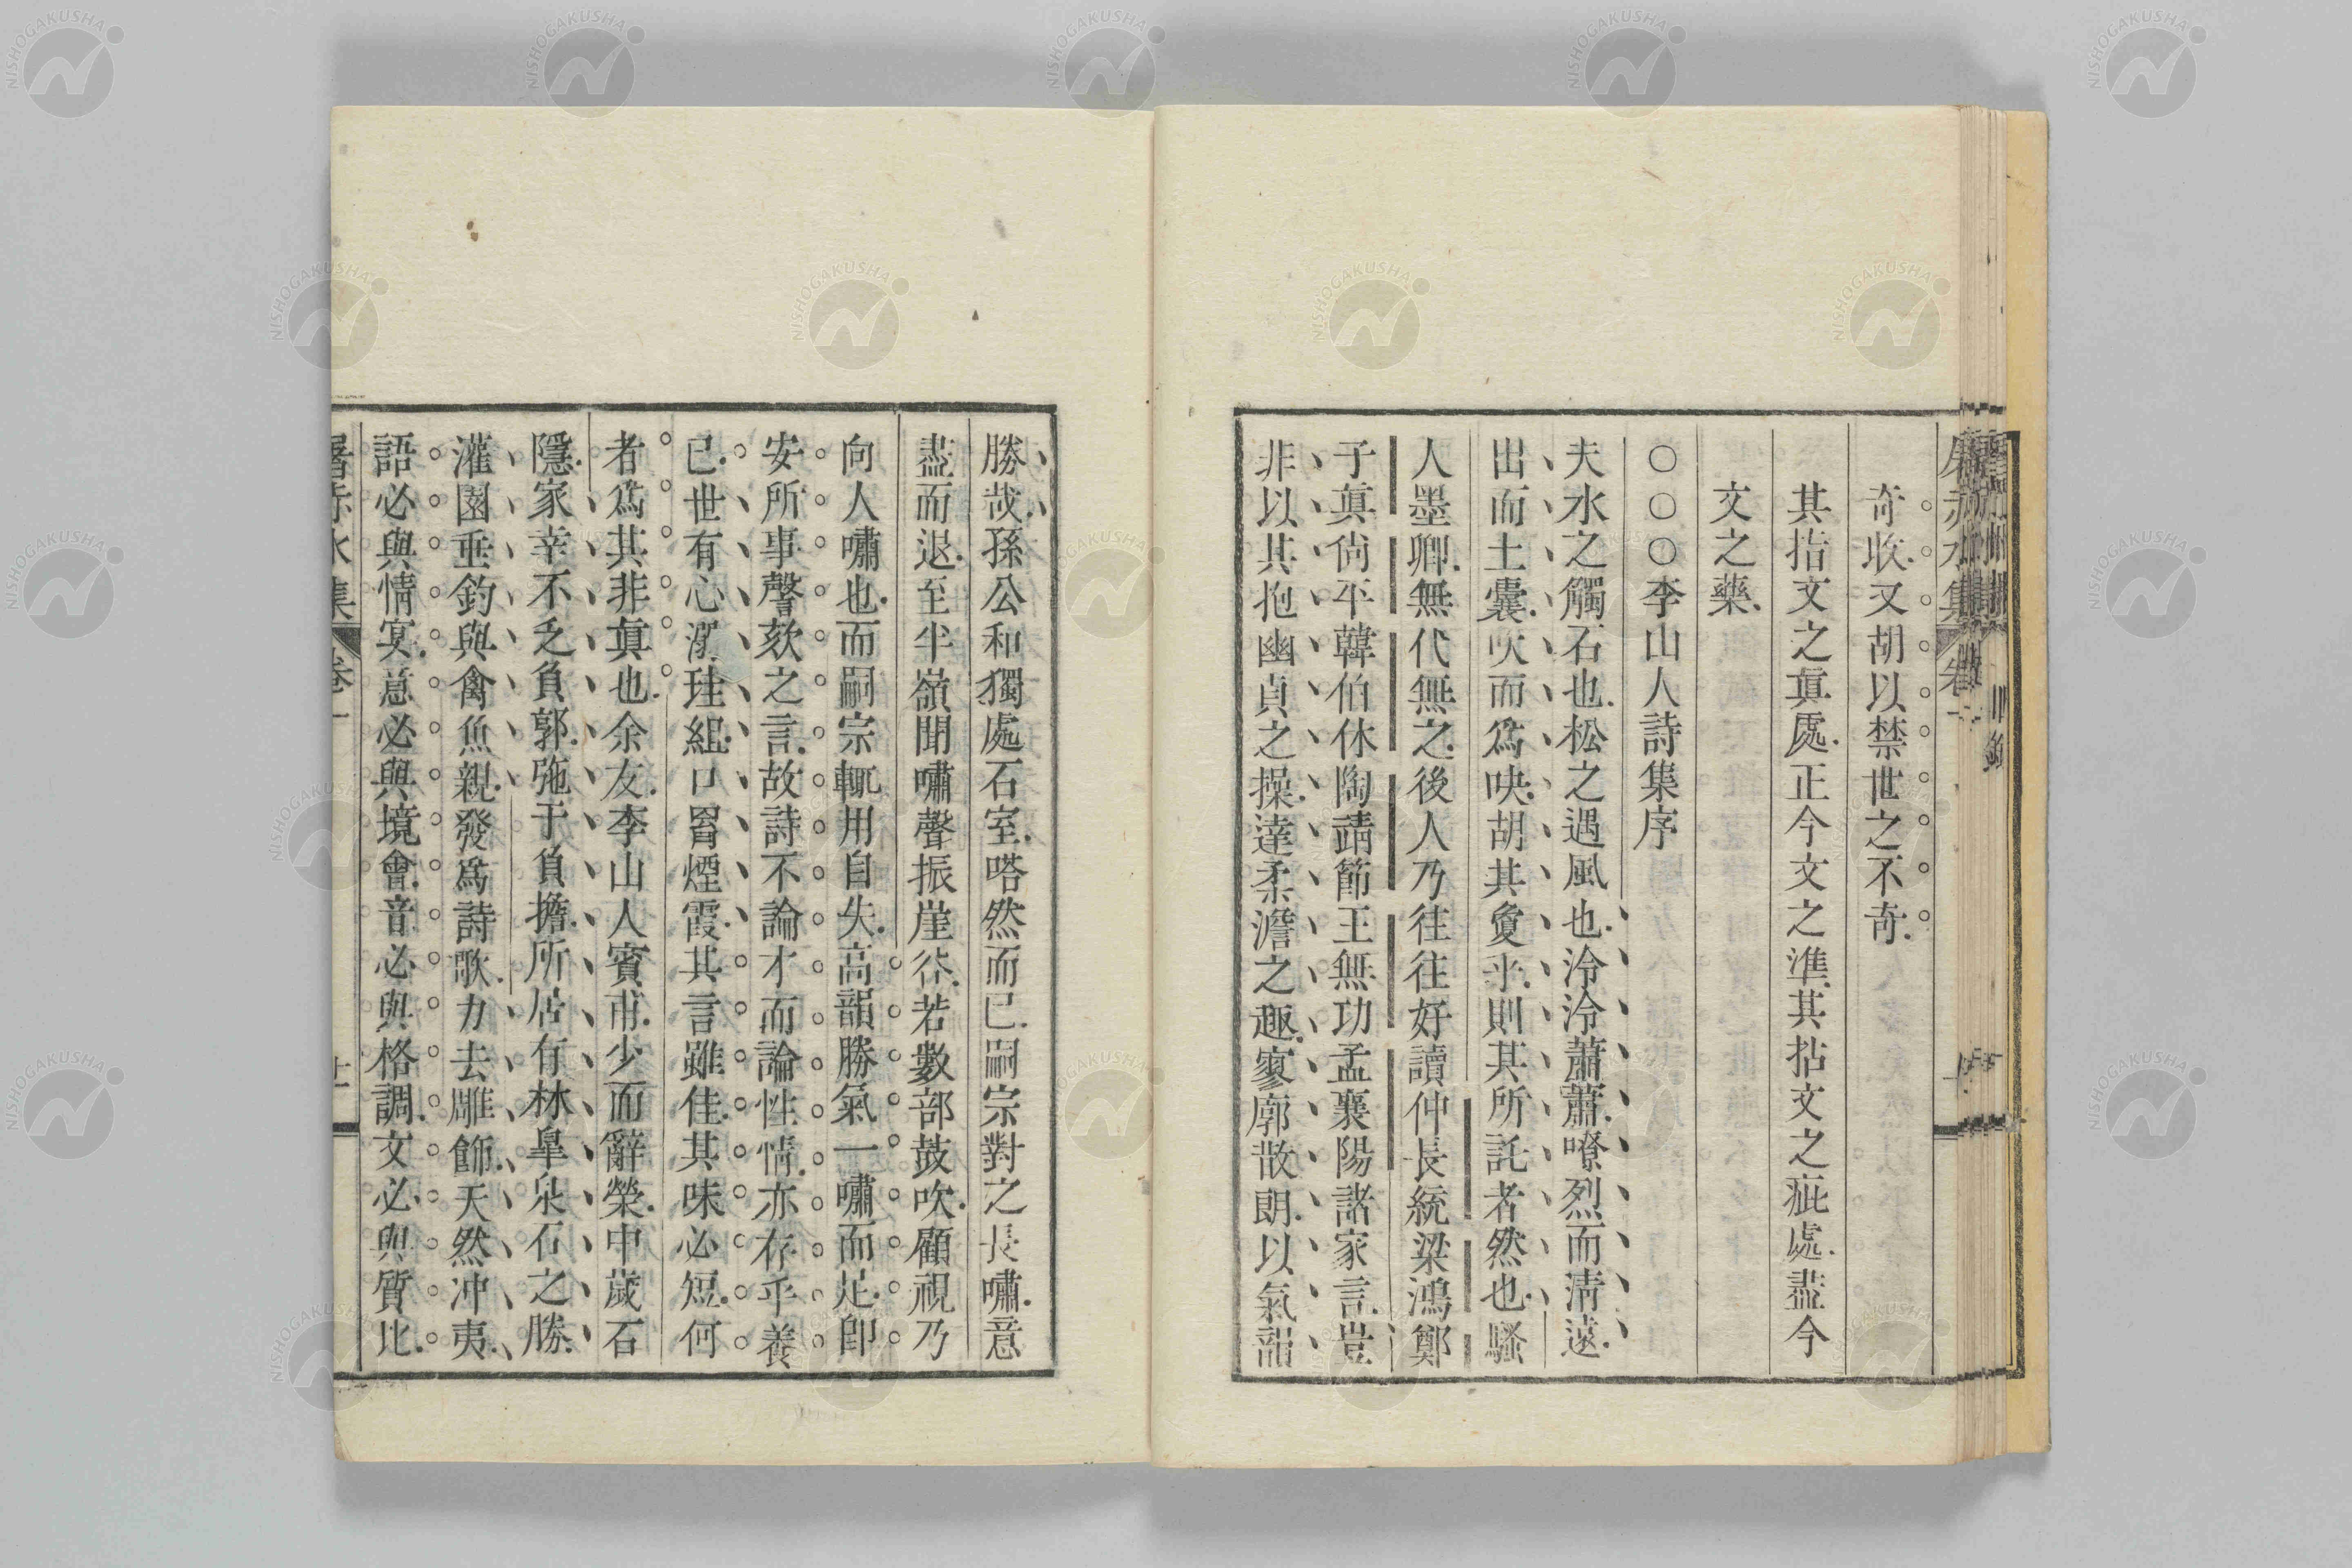 奇收又胡以禁世之不奇
其指文之眞處正今文之準其拈文之疵處盡今
文之藥
○○○李山人詩集序
夫水之觸石也松之遇風也泠泠蕭蕭嘹烈而淸遠
出而土囊吹而爲吷胡其敻乎則其所託者然也騷
人墨卿無代無之後人乃往往好讀仲長統梁鴻鄭
子眞尙平韓伯休陶靖節王無功孟襄陽諸家言豈
非以其抱幽貞之操達柔澹之趣寥廓散朗以氣韻
勝哉孫公和獨處石室嗒然而已嗣宗對之長嘯意
盡而退至半嶺聞嘯聲振崖谷若數部鼓吹顧視乃
向人嘯也而嗣宗輒用自失高韻勝氣一嘯而足卽
安所事謦欬之言故詩不論才而論性情亦存乎養
已世有心溺珪組口習煙霞其言雖佳其味必短何
者爲其非眞也余友李山人賓甫少而辭榮中歲石
隱家幸不乏負郭弛于負擔所居有林臯泉石之勝
灌園垂釣與禽魚親發爲詩歌力去雕飾天然冲夷
語必與情冥意必與境會音必與格調文必與質比
屠赤水集 卷一
NISHOGAKUSHA